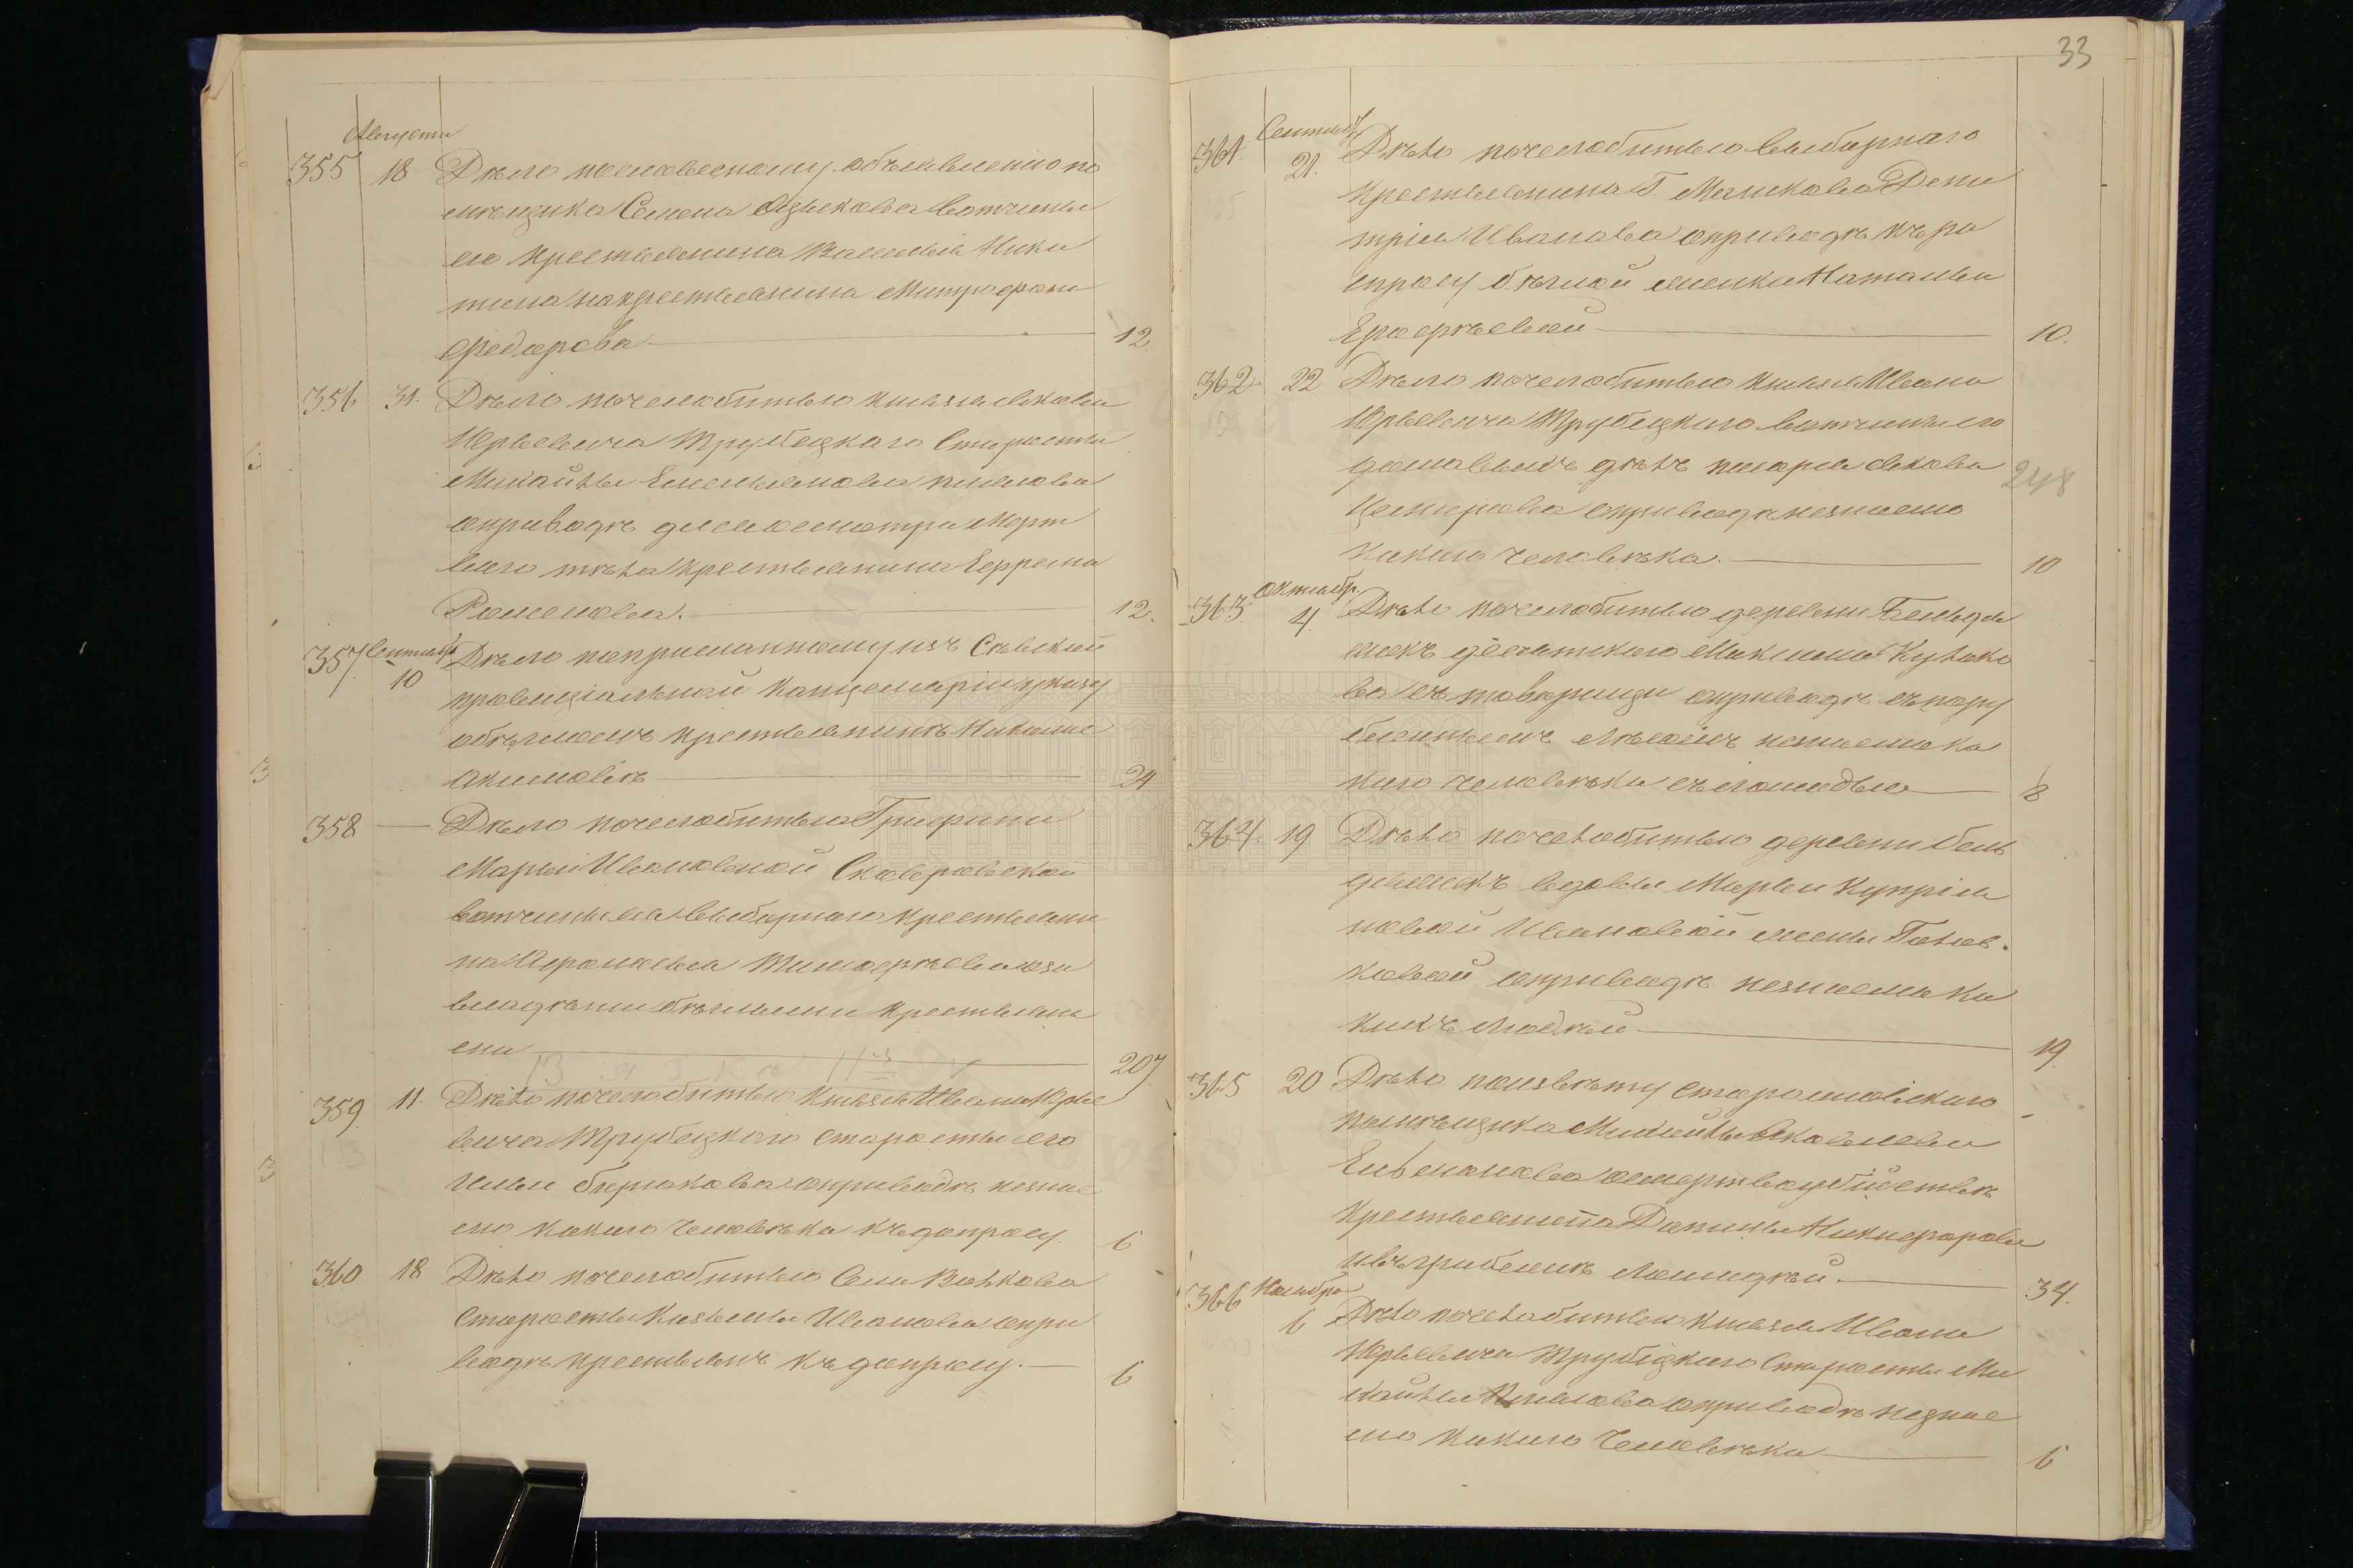 Августа
355 18 Дело пословесному объявлению по
мещика Семена Языкова вотчины
его крестьянина Василья Ники
тина на крестьянина Митрофана
Федорова 12.
356 31. Дело почелобитью князя Якова
Юрьевича Трубецкаго Старосты
Михайлы Емельянова
оприводе для осмотра мерт
ваго тѣла крестьянина Ефрема
Романова. 12.
357 Сентября Дѣло поприсланному изъ Севской
10 провинціальной канцеляріи указу
обеглом крестьянине Никоне
Акимове 24
358 — Дѣло почелобитью Графини
Марьи Ивановной Скавронской
вотчины ея выборнаго крестьяни
на Тимофеева оза
владѣнии бѣглыми крестьяна
ми 207
359. 11. Дѣло почелобитью князя Ивана Юрье
вича Трубецкаго старосты его
Ильи Бирюкова оприводѣ незнае
мо какого человѣка къ допросу. 6
360 18 Дѣло почелобитью Села Волкова
старосты Казьмы Иванова опри
водѣ крестьянъ къ допросу. — 6
33
361 Сентября Дѣло почелобитью выборнаго
21. крестьянина Г. Маликова Дми
трія Иванова оприводѣ къ ра
спросу бѣглой женки Натальи
Ерофѣевой 10.
362 22 Дѣло почелобитью князя Ивана
Юрьевича Трубецкаго вотчины его
домовыхъ дѣлъ писаря Якова
оприводѣ незнаемо
248
какого человѣка. 10
363 Октября Дѣло почелобитью деревни
4. десятскаго Максима Кулако
ва съ товарищи оприводѣ съ пору
незнаемо ка
кого человѣка съ лошадью 8
364. 19 Дѣло почелобитью деревни
вдовы Марьи Купрія
новой Ивановской жены
оприводѣ незнаемо ка
кихъ людей 19.
365 20 Дѣло поизвѣту
помѣщика Михайлы Яковлева
Емельянова осмертноубийстве
крестьянина Данилы Никифорова
ивъ грабеже лошадей. 34.
366 Ноября
6 Дѣло почелобитью князя Ивана
Юрьевича Трубецкаго Старосты Ми
хайлы оприводѣ незнае
мо какого человѣка 6